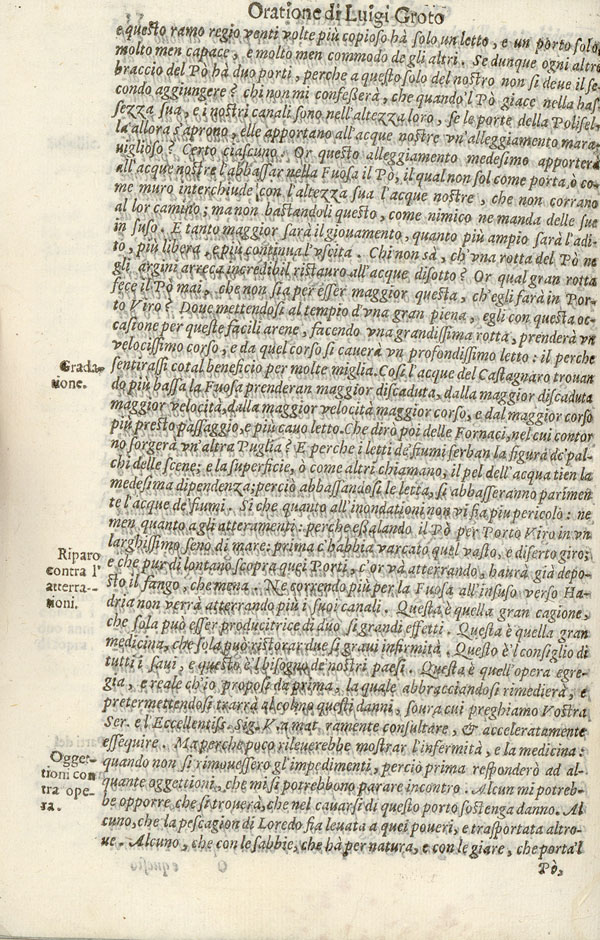 Oratione di Luigi Groto
e questo ramo regio venti volte più copioso hà solo un letto, e un porto solo,
molto men capace, e molto men commodo de gli altri. Se dunque ogni altro
braccio del Pò hà duo porti, perche a questo solo del nostro non si deue il se-
condo aggiungere? chi non mi confesserà, che quando'l Pò giace nella bas
sezza sua, e i nostri canali sono nell'altezza loro, se le porte della Polisel-
la allora s'aprono, elle apportano all'acque nostre vn'alleggiamento mara
uiglioso? Certo ciascuno. Or questo alleggiamento medesimo apporterà
all'acque nostre l'abbassar nella Fuosa il Pò, il qual non sol come porta, ò co-
me muro interchiude con l'altezza sua l'acque nostre, che non corrano
al lor camino; ma non bastandoli questo, come nimico ne manda delle sue
in suso. E tanto maggior sarà il giouamento, quanto più ampio sarà l'adi-
to, più libera, e più continua l'vscita. Chi non sà, ch'vna rotta del Pò ne
gli argini arreca incredibil ristauro all'acque disotto? Or qual gran rotta
fece il Pò mai, che non sia per esser maggior questa, ch'egli farà in Por-
to Viro? Doue mettendosi al tempio d'vna gran piena, egli con questa oc-
casione per queste facili arene, facendo vna grandissima rotta, prenderà vn
velocissimo corso, e da quel corso si cauerà vn profondissimo letto: il perche
Grada-
tione.
sentirassi cotal beneficio per molte miglia. Così l'acque del Castagnaro trouan
do più bassa la Fuosa prenderan maggior discaduta, dalla maggior discaduta
maggior velocità, dalla maggior velocità maggior corso, e dal maggior corso
più presto passaggio, e più cauo letto. Che dirò poi delle Fornaci, nel cui contor
no sorgerà vn'altra Puglia? E perche i letti de' fiumi serban la figura de' pal-
chi delle scene; e la superficie, ò come altri chiamano, il pel dell'acqua tien la
medesima dipendenza; perciò abbassandosi le letta, si abbasseranno parimen
te l'acque de' fiumi. Si che quanto all'inondationi non vi sia piu pericolo: ne
men quanto a gli atteramenti: perche essalando il Pò per Porto Viro in vn
Riparo
contra l'
atterra--
tioni.
larghissimo seno di mare: prima c'habbia varcato quel vasto, e diserto giro;
e che pur di lontano scopra quei Porti, c'or và atterrando, haurà già depo-
sto il fango, che mena. Ne correndo più per la Fuosa all'insuso verso Ha-
dria non verrà atterrando più i suoi canali. Questa è quella gran cagione,
che sola può esser producitrice di duo si grandi effetti. Questa è quella gran
medicina, che sola può ristorar due si graui infirmità. Questo è'l consiglio di
tutti i saui, e questo è'l bisogno de' nostri paesi. Questa è quell'opera egre-
gia, e reale ch'io proposi da prima, la quale abbracciandosi rimedierà, e
pretermettendosi trarrà al colmo questi danni, soura cui preghiamo Vostra
Ser. e l'Eccellentiss. Sig. V. a mat. ramente consultare, & acceleratamente
essequire. Ma perche poco rileuerebbe mostrar l'infermità, e la medicina:
Ogget-
tioni con
tra ope-
ra.
quando non si rimouessero gl'impedimenti, perciò prima risponderò ad al-
quante oggettioni, che mi si potrebbono parare incontro. Alcun mi potreb-
be opporre, che si trouerà, che nel cauarsi di questo porto sostenga danno. Al
cuno, che la pescagion di Loredo sia leuata a quei poueri, e trasportata altro-
ue. Alcuno, che con le sabbie, che hà per natura, e con le giare, che porta'l
Pò,